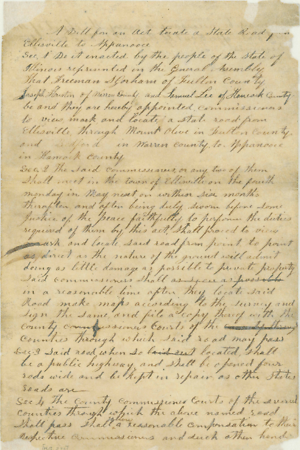 A Bill for an Act locate a State Road from
Ellisville to Appanooce
Sec 1 Be it enacted by the people of the State of
Illinois represented in the General Assembly
That Freeman of Fulton County
Joseph of Warren County and Samuel Lee of Hancock County
be and they are hereby appointed commissioners
to view mark and locate a state road from
Ellisville, through Mount in Fulton County
and in Warren County to Appanooce
in Hancock County.
Sec 2 The said commissioners or any two of them
Shall meet in the town of Ellisville on the fourth
monday in May next or within six months
thereafter and after being duly sworn before some
Justice of the Peace faithfully to perform the duties
required of them by this act, shall proceed to view
mark and locate said road from point to point
as direct as the nature of the ground will admit
doing as little damage as possible to private property
Said commissioners shall as soon as possible
or a reasonable time after they locate said
Road make maps according to the survey and
sign the same and file a copy thereof with the
County Commissioners Courts of the
Counties through which said road may pass
Sec 3 Said road when so located, shall
be a public highway and shall be opened four
rods wide and be kept in repair as other State
roads are
Sec 4 The County Commissioners Courts of the several
Counties through which the above named road
Shall pass shall a reasonable compensation to their
respective Commissioners and such other hands